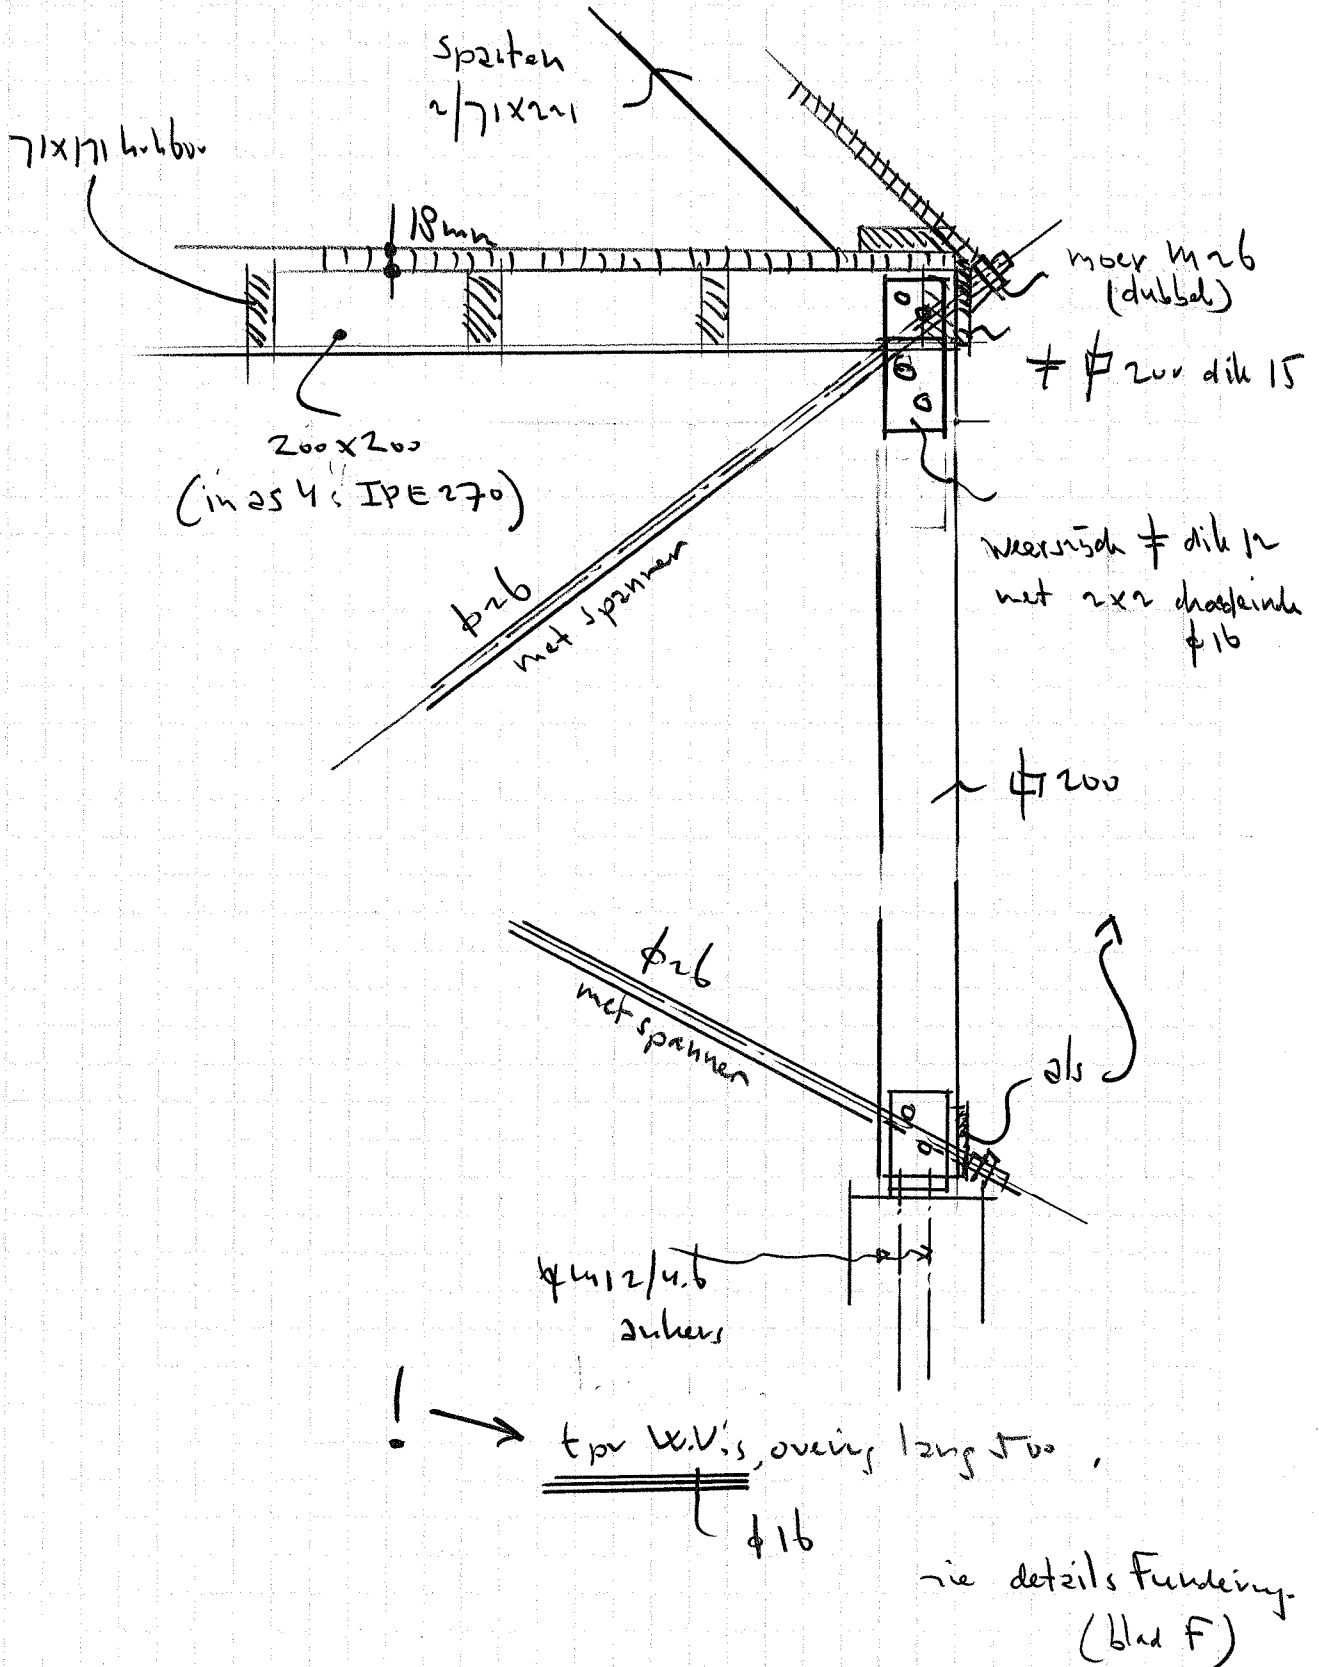 sparten
2/71x221
71x171
18mm
moer M26
(dubbel)
≠ ⌷ 200 dik 15
200x200
(in as 4: IPE270)
weerszijde ≠ dik 12
met 2x2 draadeinde
ϕ16
ϕ26
met spanner
⌷ 200
ϕ26
met spanner
als
4M12/4.6
ankers
! → tpv W.V.'s, overig lang 500.
ϕ16
zie details Fundering.
(blad F)